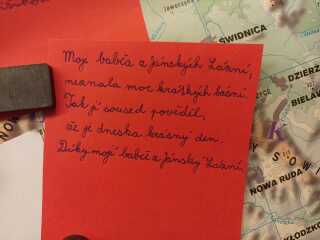 Moje babča z Jánských Lázní,
neznala moc krátkých básní.
Tak jí soused pověděl,
že je dneska krásný den.
Díky moji babče z Jánský Lázní.
ŚWIDNICA
DZIERŻ
BIELAW
NOWA RUDA
KŁODZKO